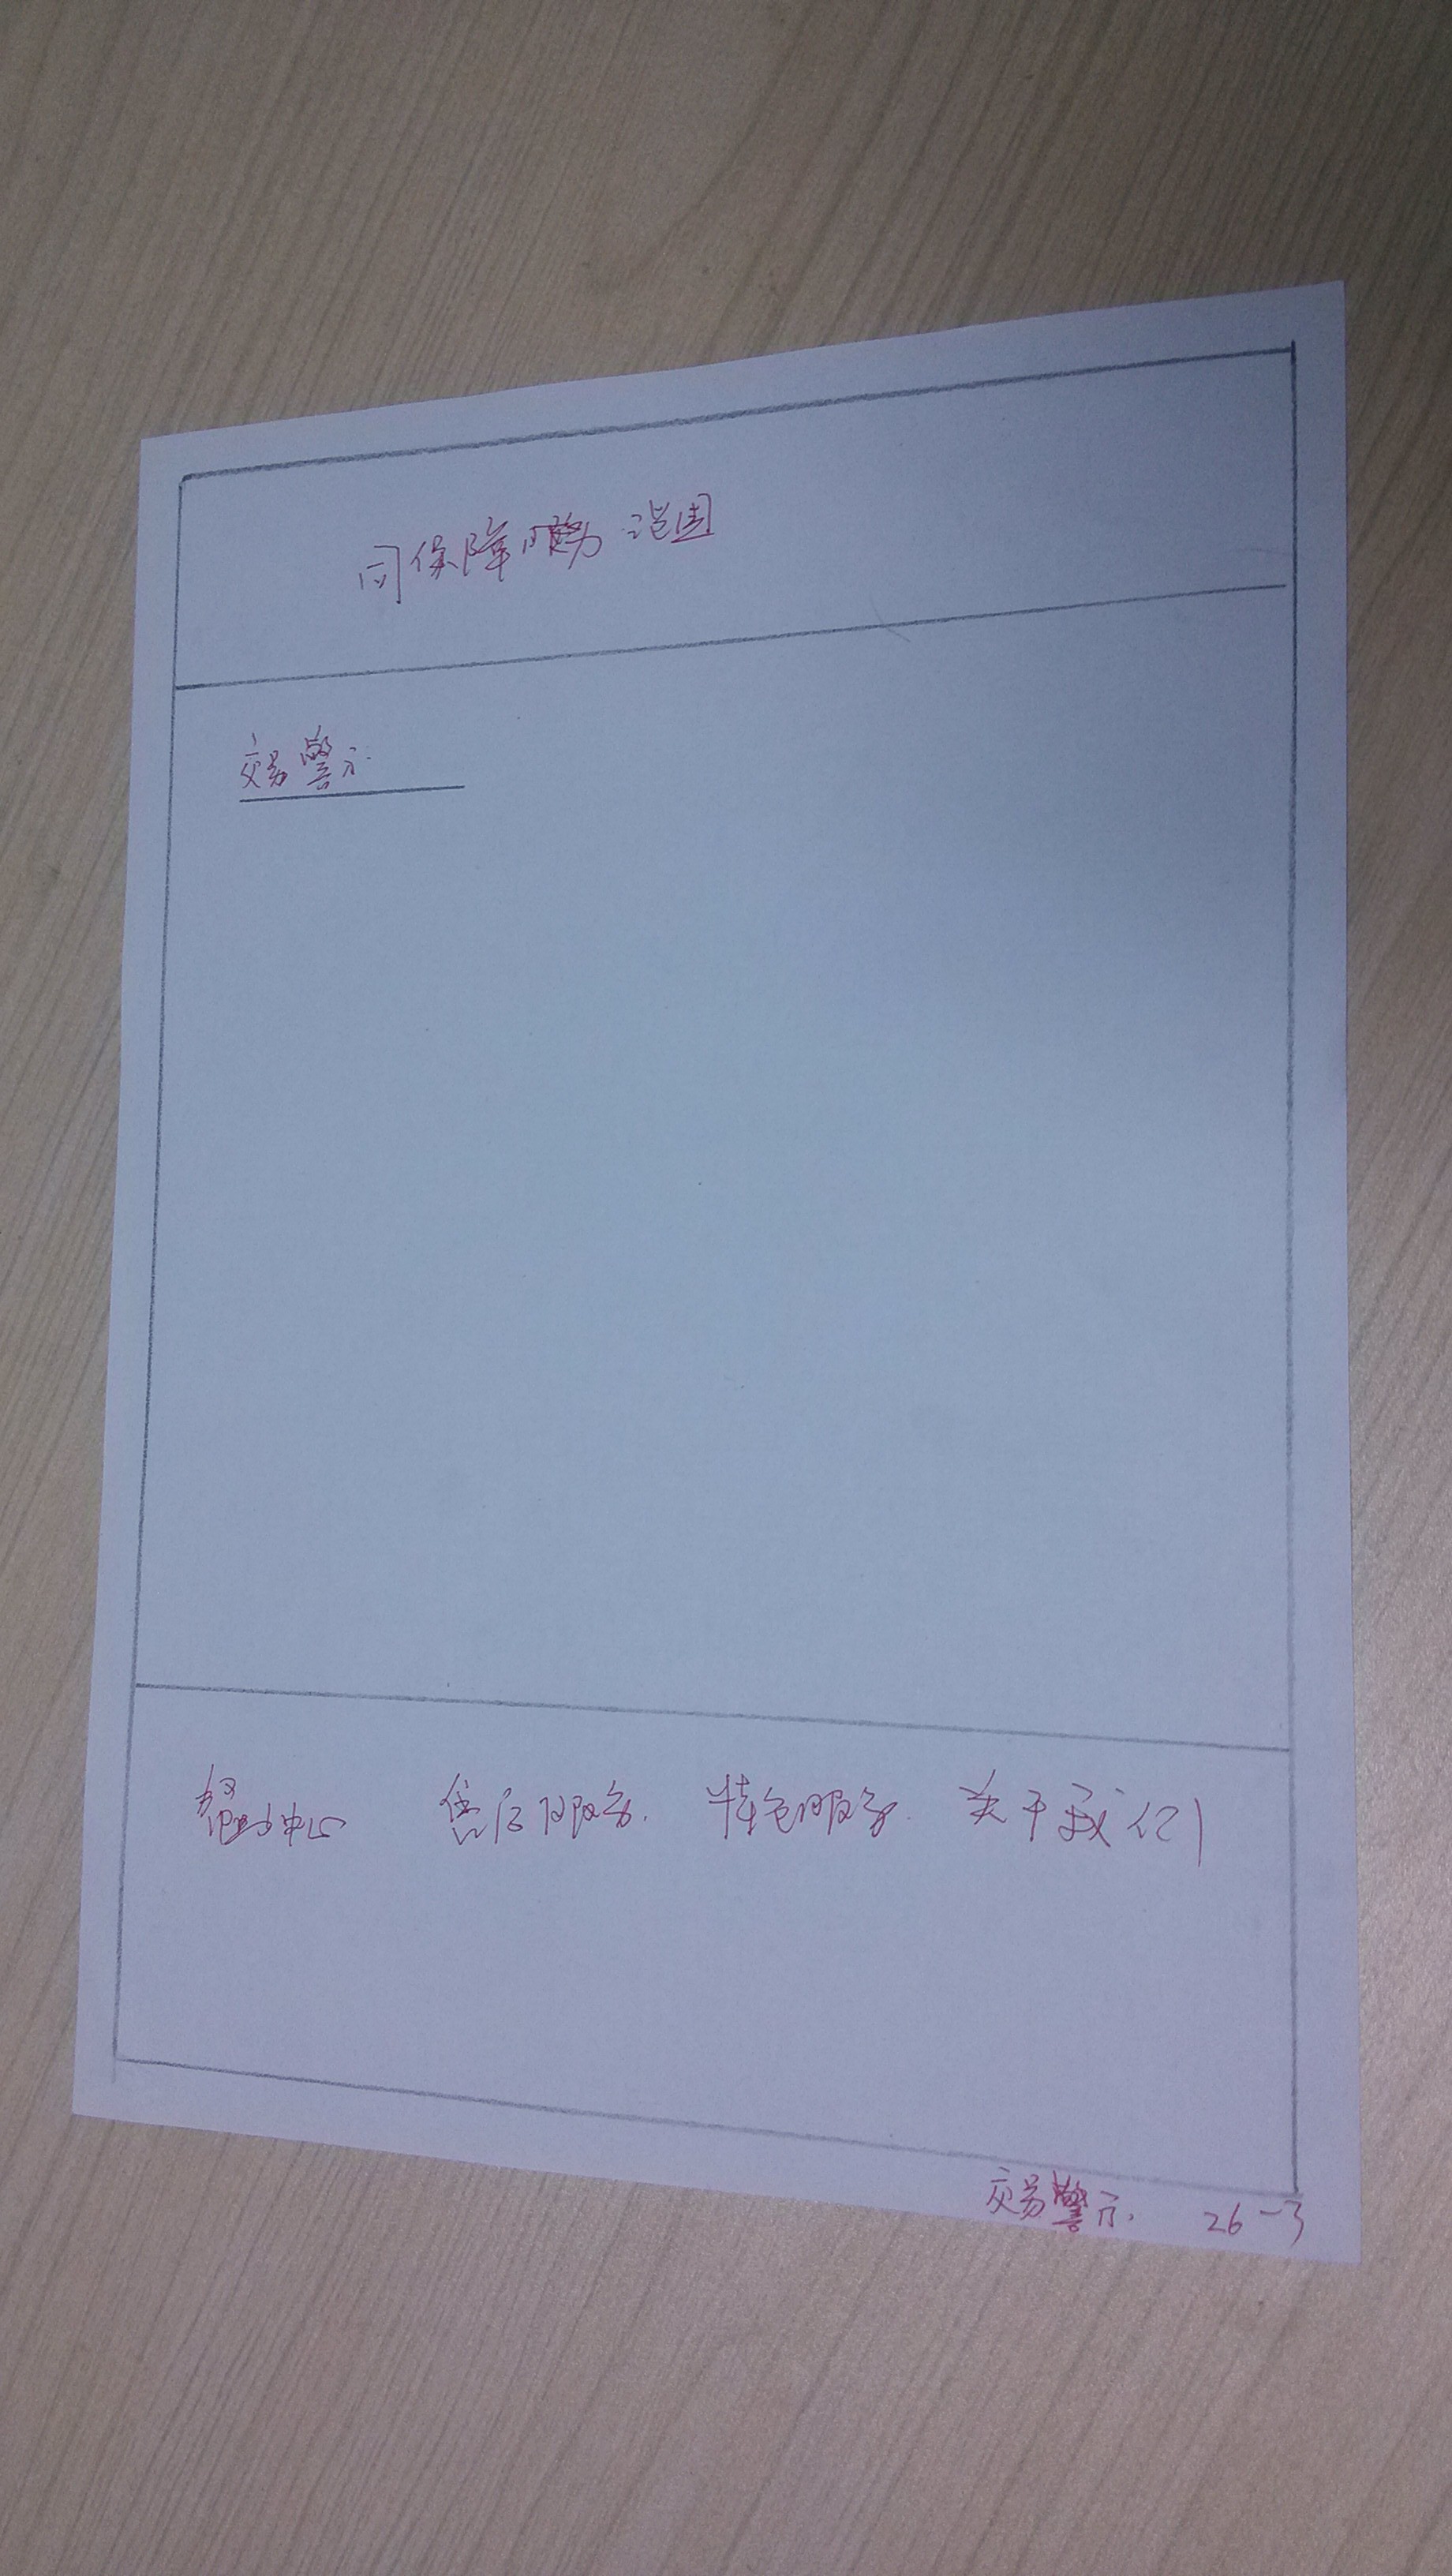 同保障服务范围
交易警示
帮助中心 售后服务 特色服务 关于我们
交易警示 26-3